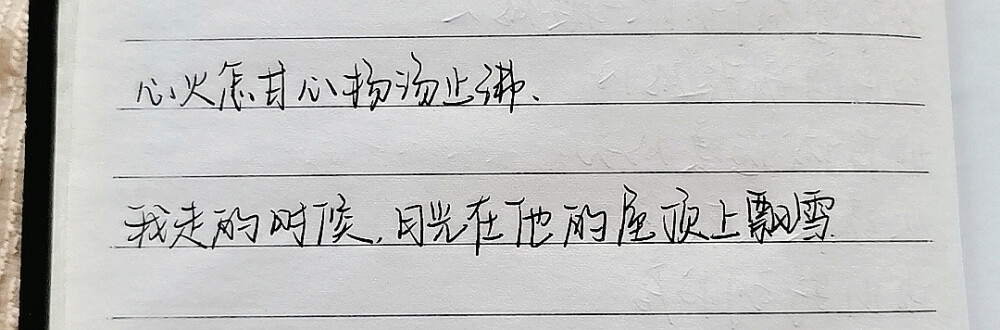 心火怎甘心扬汤止沸、
我走的时候,月光在他的屋顶上飘雪